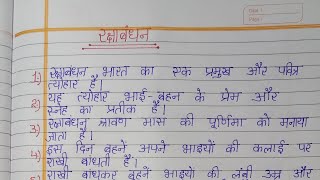 रक्षाबंधन
1) रक्षाबंधन भारत का एक प्रमुख और पवित्र
त्योहार है।
2) यह त्योहार भाई-बहन के प्रेम और
स्नेह का प्रतीक है।
3) रक्षाबंधन श्रावण मास की पूर्णिमा को मनाया
जाता है।
4) इस दिन बहने अपने भाइयों की कलाई पर
राखी बांधती है।
5) राखी बांधकर बहनें भाइयों की लंबी उम्र और